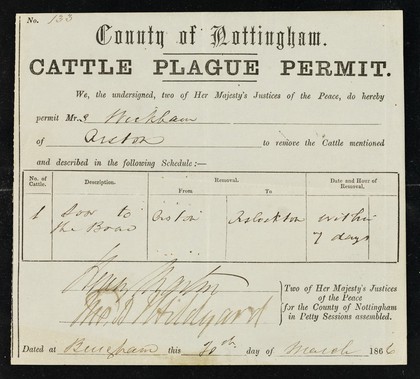 No. 133
County of Nottingham.
CATTLE PLAGUE PERMIT.
We, the undersigned, two of Her Majesty's Justices of the Peace, do hereby
permit Mr. J Wickham
of Orston to remove the Cattle mentioned
and described in the following Schedule:—
No. of Cattle. Description. Removal. From To Date and Hour of Removal.
1 Sow to the Boar Orston Aslockton within 7 days
Thos. B Hildyard
Two of Her Majesty's Justices
of the Peace
for the County of Nottingham
in Petty Sessions assembled.
Dated at Bingham this day of March 1866